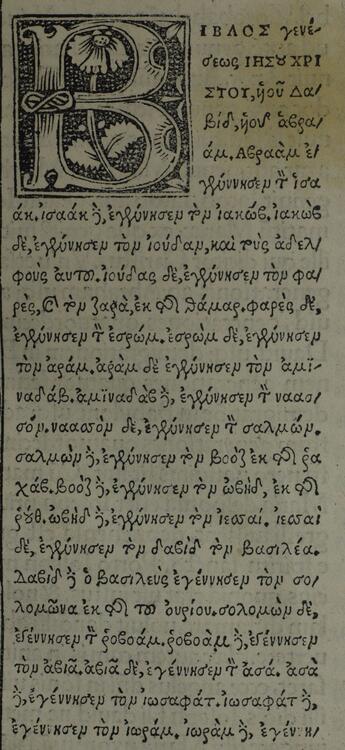 ΒΙΒΛΟΣ γενέ-
σεως ΙΗΣΟΥ ΧΡΙ
ΣΤΟΥ, ἡοῦ Δα/
βίδ, ἡοῦ ἀβρα/
άμ. Αβραὰμ ἐ/
γέννησεν τὸν ἰσα
άκ. ἰσαὰκ δὲ, ἐγέννησεν τὸν ἰακώβ. ἰακὼβ
δὲ, ἐγέννησεν τὸν ἰούδαν, καὶ τοὺς ἀδελ/
φοὺς αὐτοῦ. ἰούδας δὲ, ἐγέννησεν τὸν φα/
ρὲς, καὶ τὸν ζαρὰ, ἐκ τῆς θάμαρ. φαρὲς δὲ,
ἐγέννησεν τὸν ἐσρώμ. ἐσρὼμ δὲ, ἐγέννησεν
τὸν ἀράμ. ἀρὰμ δὲ ἐγέννησεν τὸν ἀμϊ-
ναδάβ. ἀμϊναδὰβ δὲ, ἐγέννησεν τὸν ναασ/
σόν. ναασσὸν δὲ, ἐγέννησεν τὸν σαλμών.
σαλμὼν δὲ, ἐγέννησεν τὸν βοὸζ ἐκ τῆς ῥα
χάβ. βοὸζ δὲ, ἐγέννησεν τὸν ὠβὴδ, ἐκ τῆς
ῥούθ. ὠβὴδ δὲ, ἐγέννησεν τὸν ἰεσσαί. ἰεσσαὶ
δὲ, ἐγέννησεν τὸν δαβὶδ τὸν βασιλέα.
Δαβὶδ δὲ ὁ βασιλεὺς ἐγέννησεν τὸν σο/
λομῶνα ἐκ τῆς τοῦ ουρίου. σολομὼν δὲ,
ἐγέννησεν τὸν ῥοβοάμ. ῥοβοὰμ δὲ, ἐγέννησεν
τὸν ἀβιᾶ. ἀβιᾶ δὲ, ἐγέννησεν τὸν ἀσά. ἀσὰ
δὲ, ἐγέννησεν τὸν ἰωσαφάτ. ἰωσαφὰτ δὲ,
ἐγέννησεν τὸν ἰωράμ. ἰωρὰμ δὲ, ἐγέννη/